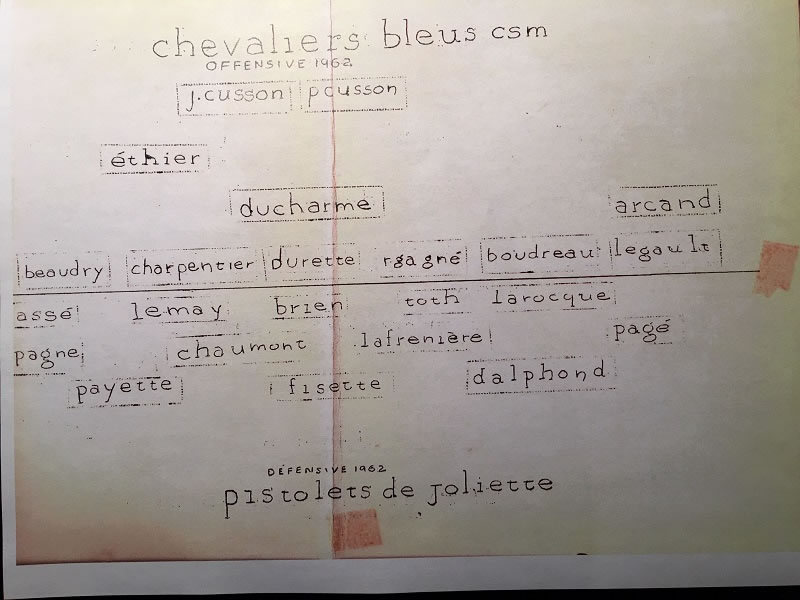 chevaliers bleus csm
OFFENSIVE 1962
j.cusson pcusson
éthier
ducharme arcand
beaudry charpentier durette rgagné boudreau legault
assé lemay brien toth larocque
pagne chaumont lafrenière pagé
payette fisette dalphond
DÉFENSIVE 1962
pistolets de joliette